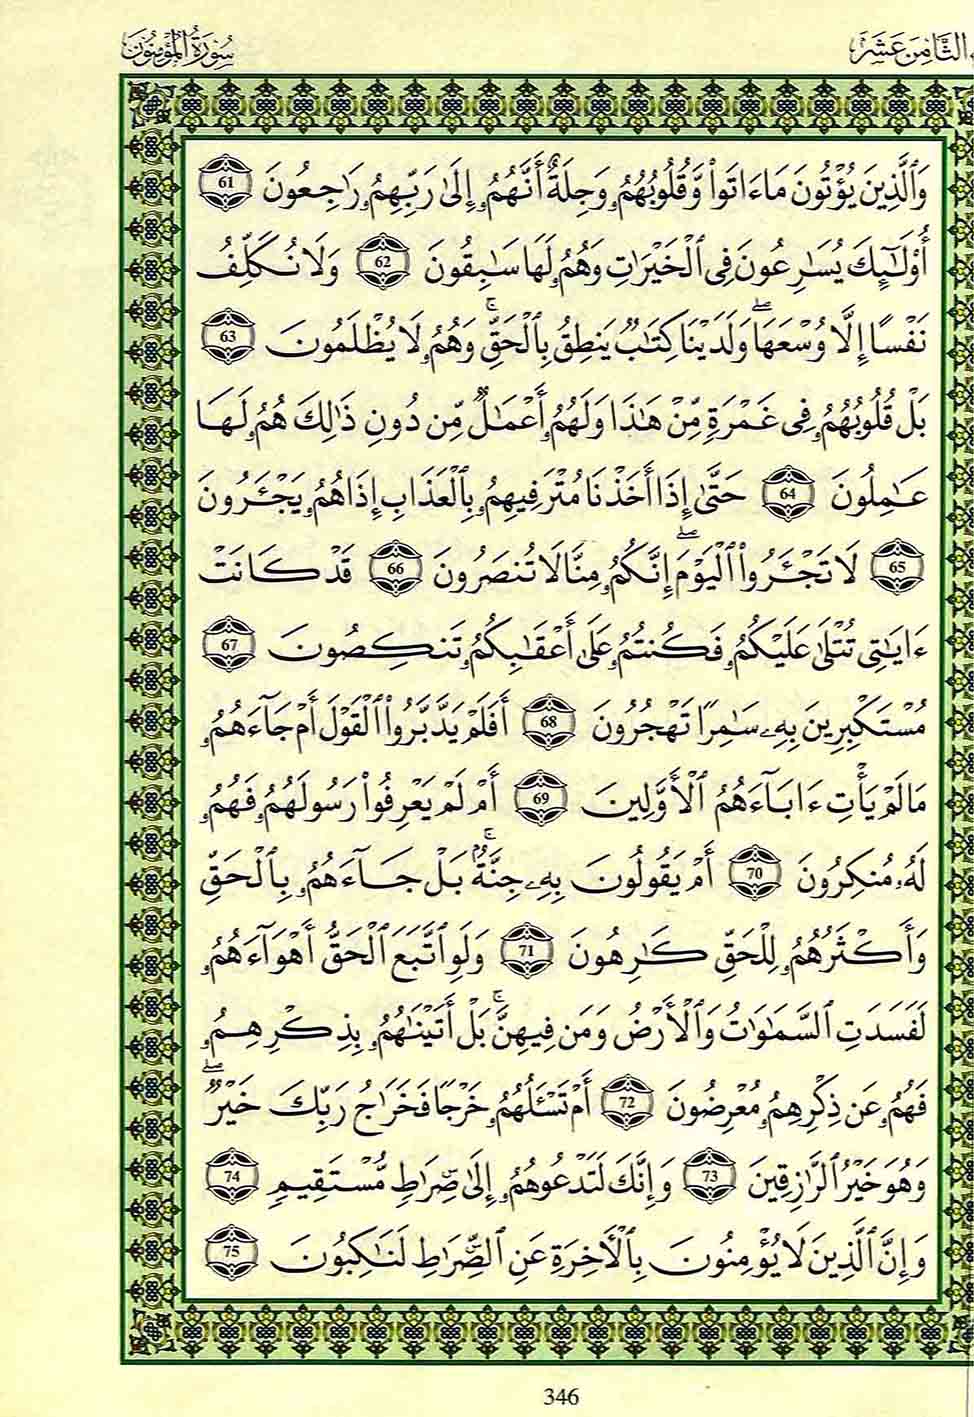 الثَّامِنَ عَشَرَ
سُورَةُ الْمُؤْمِنُونَ
وَٱلَّذِينَ يُؤْتُونَ مَآ ءَاتَوا۟ وَّقُلُوبُهُمُۥ وَجِلَةٌ أَنَّهُمُۥٓ إِلَىٰ رَبِّهِمُۥ رَٰجِعُونَ 61
أُو۟لَٰٓئِكَ يُسَٰرِعُونَ فِى ٱلْخَيْرَٰتِ وَهُمُۥ لَهَا سَٰبِقُونَ 62 وَلَا نُكَلِّفُ
نَفْسًا إِلَّا وُسْعَهَا ۖ وَلَدَيْنَا كِتَٰبٌ يَنطِقُ بِٱلْحَقِّ ۚ وَهُمُۥ لَا يُظْلَمُونَ 63
بَلْ قُلُوبُهُمُۥ فِى غَمْرَةٍ مِّنْ هَٰذَا وَلَهُمُۥٓ أَعْمَٰلٌ مِّن دُونِ ذَٰلِكَ هُمُۥ لَهَا
عَٰمِلُونَ 64 حَتَّىٰٓ إِذَآ أَخَذْنَا مُتْرَفِيهِمُۥ بِٱلْعَذَابِ إِذَا هُمُۥ يَجْـَٔرُونَ
65 لَا تَجْـَٔرُوا۟ ٱلْيَوْمَ ۖ إِنَّكُمُۥ مِنَّا لَا تُنصَرُونَ 66 قَدْ كَانَتْ
ءَايَٰتِى تُتْلَىٰ عَلَيْكُمُۥ فَكُنتُمُۥ عَلَىٰٓ أَعْقَٰبِكُمُۥ تَنكِصُونَ 67
مُسْتَكْبِرِينَ بِهِۦ سَٰمِرًا تَهْجُرُونَ 68 أَفَلَمْ يَدَّبَّرُوا۟ ٱلْقَوْلَ أَمْ جَآءَهُمُۥ
مَا لَمْ يَأْتِ ءَابَآءَهُمُ ٱلْأَوَّلِينَ 69 أَمْ لَمْ يَعْرِفُوا۟ رَسُولَهُمُۥ فَهُمُۥ
لَهُۥ مُنكِرُونَ 70 أَمْ يَقُولُونَ بِهِۦ جِنَّةٌ ۚ بَلْ جَآءَهُمُۥ بِٱلْحَقِّ
وَأَكْثَرُهُمُۥ لِلْحَقِّ كَٰرِهُونَ 71 وَلَوِ ٱتَّبَعَ ٱلْحَقُّ أَهْوَآءَهُمُۥ
لَفَسَدَتِ ٱلسَّمَٰوَٰتُ وَٱلْأَرْضُ وَمَن فِيهِنَّ ۚ بَلْ أَتَيْنَٰهُمُۥ بِذِكْرِهِمُۥ
فَهُمُۥ عَن ذِكْرِهِمُۥ مُعْرِضُونَ 72 أَمْ تَسْـَٔلُهُمُۥ خَرْجًا فَخَرَاجُ رَبِّكَ خَيْرٌ ۖ
وَهُوَ خَيْرُ ٱلرَّٰزِقِينَ 73 وَإِنَّكَ لَتَدْعُوهُمُۥٓ إِلَىٰ صِرَٰطٍ مُّسْتَقِيمٍ 74
وَإِنَّ ٱلَّذِينَ لَا يُؤْمِنُونَ بِٱلْءَاخِرَةِ عَنِ ٱلصِّرَٰطِ لَنَٰكِبُونَ 75
346